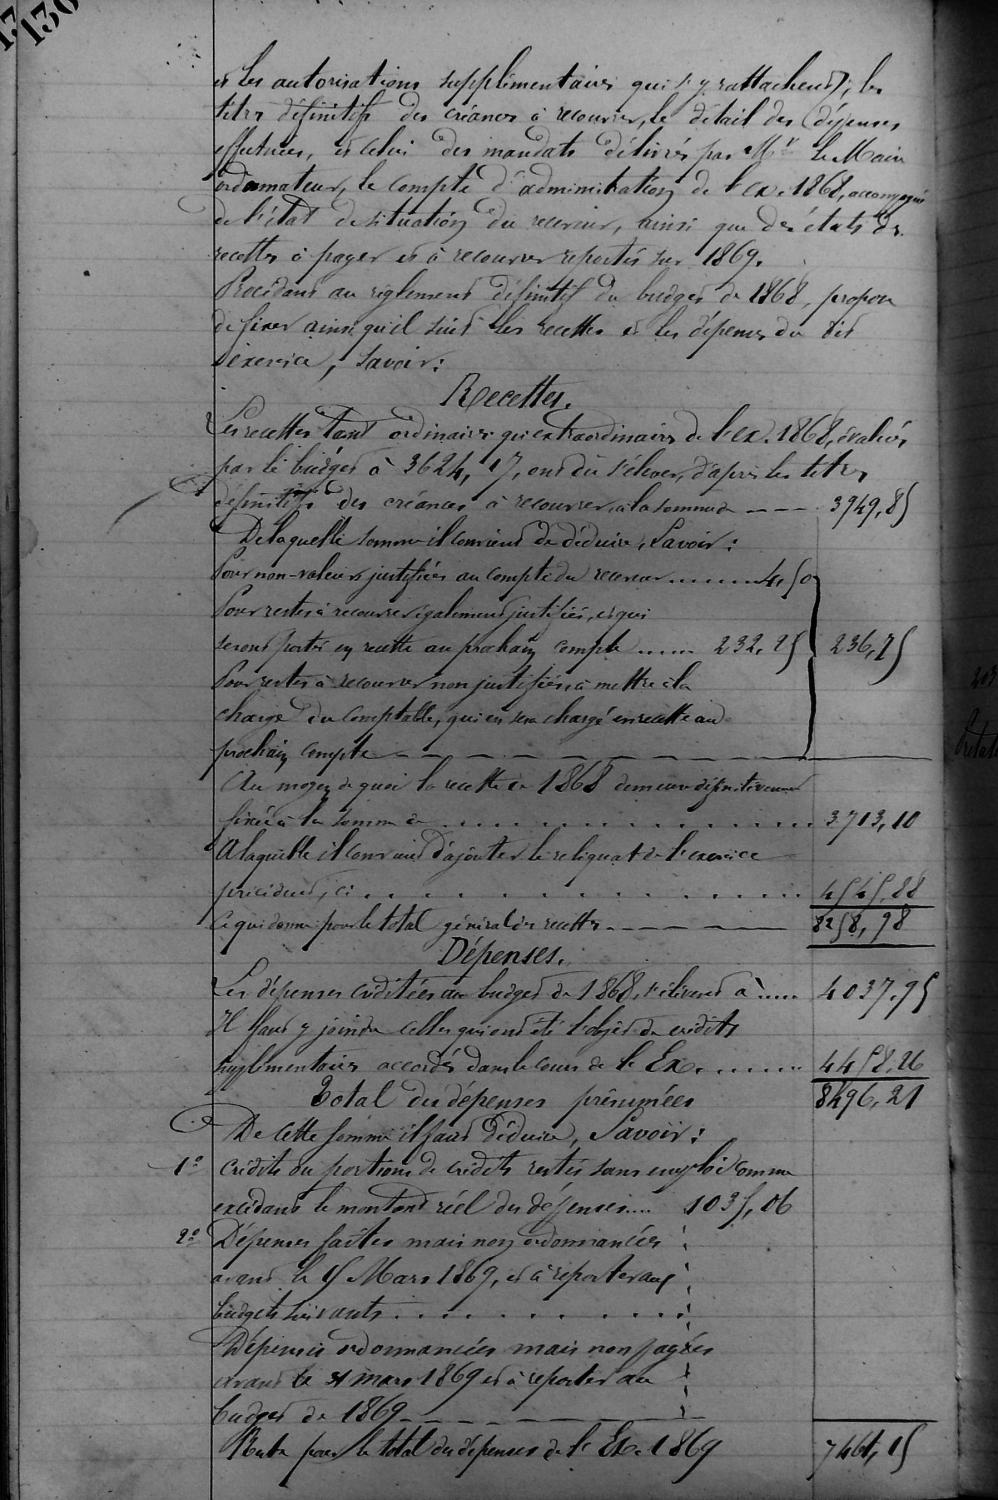 130
et les autorisations supplémentaires qui s'y rattachent; les
titres définitifs des créances à recouvrer, le détail des dépenses
effectuées, et celui des mandats délivrés par Mr le Maire
ordonnateur, le compte d'administration de l'ex. 1868, accompagné
de l'état de situation du receveur, ainsi que des états de
recettes à payer et à recouvrer reportés sur 1869.
Procédant au règlement définitif du budget de 1868, propose
de fixer ainsi qu'il suit les recettes et les dépenses du dit
exercice, Savoir:
Recettes.
Les recettes tant ordinaires qu'extraordinaires de l'ex. 1868, évaluées
par le budget à 3624,17, ont dû s'élever, d'après les titres
définitifs des créances à recouvrer, à la somme de 3949,85
De laquelle somme il convient de déduire, Savoir:
Pour non-valeurs justifiées au compte du receveur ........ 4,50
Pour restes à recouvrer également justifiés, et qui
seront portés en recette au prochain compte ...... 232,25 236,75
Pour restes à recouvrer non justifiés, à mettre à la
charge du comptable, qui en sera chargé en recette au
prochain compte
Au moyen de quoi la recette de 1868 demeure définitivement
fixée à la somme de .......... 3713,10
A laquelle il convient d'ajouter le reliquat de l'exercice
précédent, ci .......... 4545,88
Ce qui donne pour le total général des recettes 8258,98
Dépenses.
Les dépenses créditées au budget de 1868, s'élèvent à ..... 4037,95
Il faut y joindre celles qui ont été l'objet de crédits
supplémentaires accordés dans le cours de l'Ex. ........ 4458,26
Total des dépenses présumées 8496,21
De cette somme il faut déduire, Savoir:
1º Crédits ou portions de crédits restés sans emploi comme
excédant le montant réel des dépenses .... 1035,06
2º Dépenses faites mais non ordonnancées
avant le 15 Mars 1869, et à reporter aux
budgets suivants ..........
Dépenses ordonnancées mais non payées
avant le 31 mars 1869 et à reporter au
budget de 1869
Reste pour le total des dépenses de l'Ex. 1869 7461,15